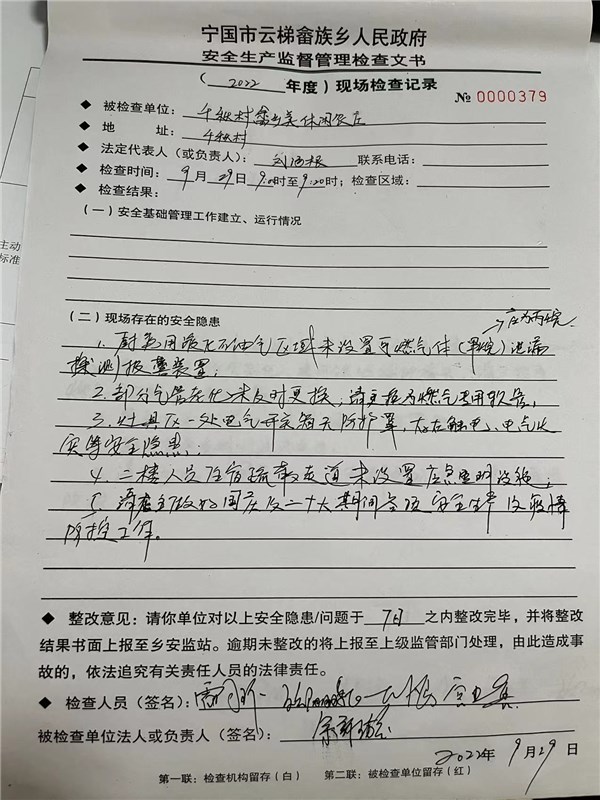 宁国市云梯畲族乡人民政府
安全生产监督管理检查文书
(2022年度)现场检查记录
№ 0000379
◆ 被检查单位: 千秋村畲乡美休闲农庄
◆ 地 址: 千秋村
◆ 法定代表人(或负责人): 联系电话:
◆ 检查时间: 9月29日9:00时至9:20时; 检查区域:
◆ 检查结果:
(一)安全基础管理工作建立、运行情况
(二)现场存在的安全隐患
→应为丙烷
1. 厨房用液化石油气区域未设置可燃气体(甲烷)泄漏
探测报警装置;
2. 部分气管老化未及时更换,请更换为燃气专用软管;
3. 灶具区一处电气开关箱无防护罩,存在触电、电气火
灾等安全隐患;
4. 二楼人员住宿疏散走道未设置应急照明设施;
5. 请落实做好国庆及二十大期间各项安全生产及疫情
防控工作。
◆ 整改意见:请你单位对以上安全隐患/问题于 7日 之内整改完毕,并将整改
结果书面上报至乡安监站。逾期未整改的将上报至上级监管部门处理,由此造成事
故的,依法追究有关责任人员的法律责任。
◆ 检查人员(签名):
被检查单位法人或负责人(签名):
2022年9月29日
第一联:检查机构留存(白) 第二联:被检查单位留存(红)
主动
标准